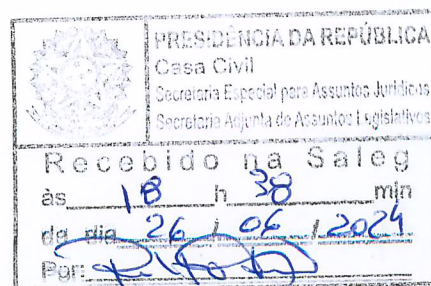 PRESIDÊNCIA DA REPÚBLICA
Casa Civil
Secretaria Especial para Assuntos Jurídicos
Secretaria Adjunta de Assuntos Legislativos
Recebido na Saleg
às 18 h 38 min
do dia 26 / 06 / 2024
Por: